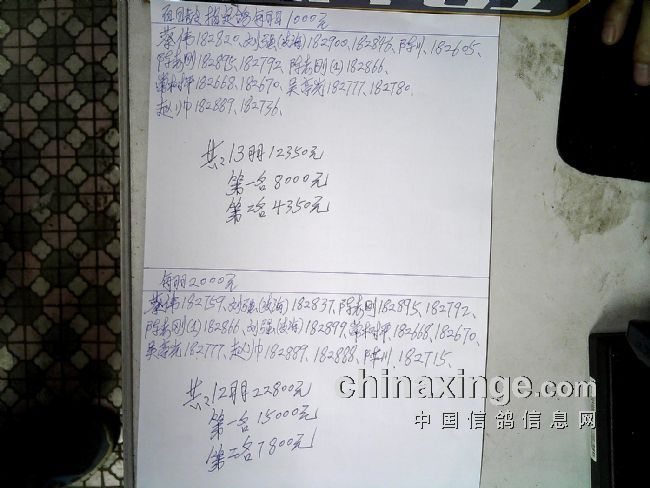 指定鸽每羽1000元
蔡伟182820、刘强(波海)182900、182846、陈川、182605、
陈志刚182895、182792、陈志刚(土)182866、
常树平182668、182670、吴彦光182777、182780、
赵小帅182889、182736、
共:13羽12350元
第一名8000元
第二名4350元
每羽2000元
蔡伟182759、刘强(波海)182837、陈志刚182895、182792、
陈志刚(土)182866、刘强(波海)182899、常树平、182668、182670、
吴彦光182777、赵小帅182889、182888、陈川、182715、
共:12羽22800元
第一名15000元
第二名7800元
chinaxinge.com
中国信鸽信息网